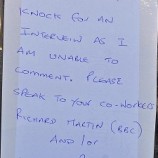 KNOCK FOR AN
INTERVIEW AS I
AM UNABLE TO
COMMENT. PLEASE
SPEAK TO YOUR CO-WORKERS
RICHARD MARTIN (BBC)
AND/OR